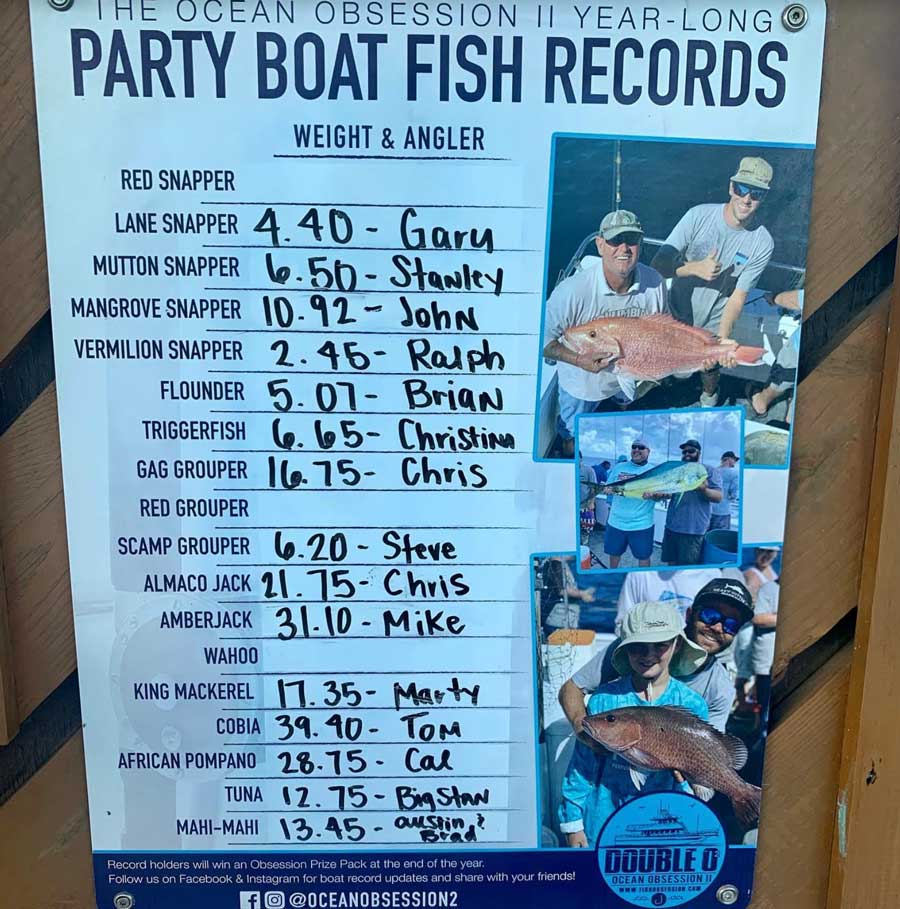 THE OCEAN OBSESSION II YEAR-LONG
PARTY BOAT FISH RECORDS
WEIGHT & ANGLER
RED SNAPPER
LANE SNAPPER 4.40 - Gary
MUTTON SNAPPER 6.50 - Stanley
MANGROVE SNAPPER 10.92 - John
VERMILION SNAPPER 2.45 - Ralph
FLOUNDER 5.07 - Brian
TRIGGERFISH 6.65 - Christina
GAG GROUPER 16.75 - Chris
RED GROUPER
SCAMP GROUPER 6.20 - Steve
ALMACO JACK 21.75 - Chris
AMBERJACK 31.10 - Mike
WAHOO
KING MACKEREL 17.35 - Marty
COBIA 39.90 - Tom
AFRICAN POMPANO 28.75 - Cal
TUNA 12.75 - Big Stan
MAHI-MAHI 13.45 - Austin &
Brad
DOUBLE O
OCEAN OBSESSION II
Record holders will win an Obsession Prize Pack at the end of the year.
Follow us on Facebook & Instagram for boat record updates and share with your friends!
@OCEANOBSESSION2